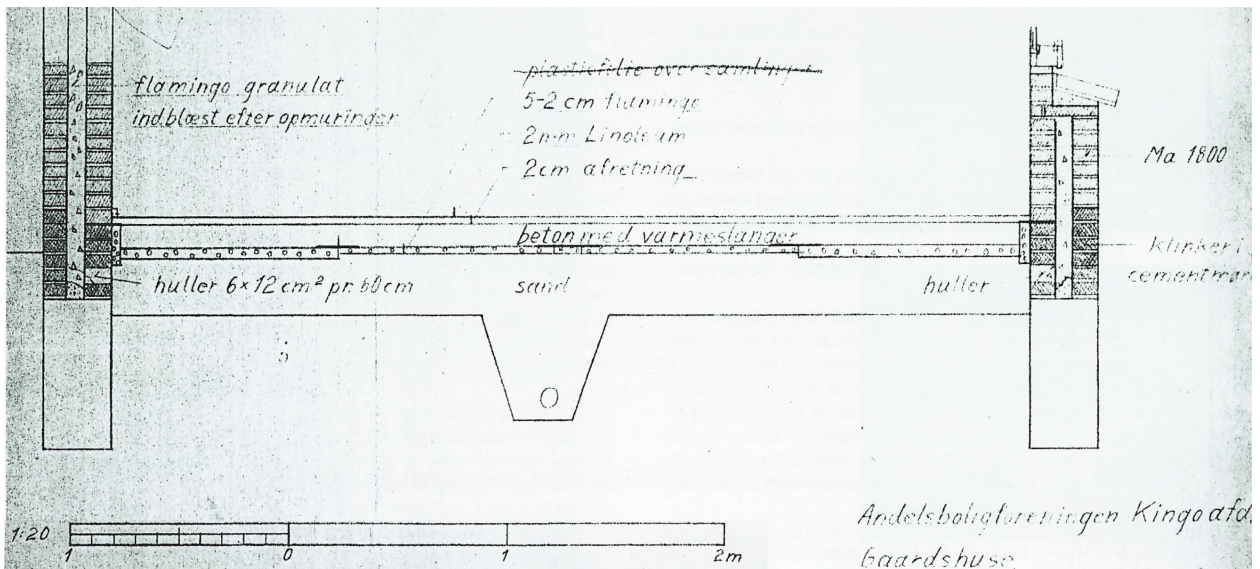 flamingo granulat
indblæst efter opmuringen
plasticfolie over samling
5-2 cm flamingo
2mm Linoleum
2cm afretning
Ma 1800
beton med varmeslanger
klinker i
cementmør
huller 6×12 cm² pr. 60cm
sand
huller
1:20
1 0 1 2m
Andelsboligforeningen Kingo afd
Gaardshuse